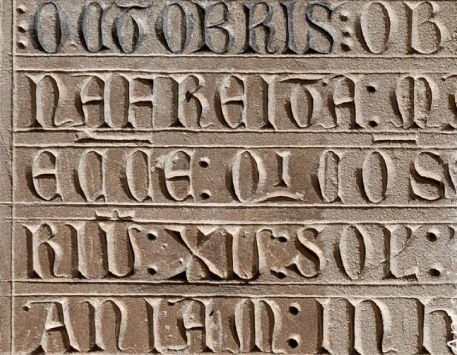 :OCTOBRIS: OB
NAFREITA: M
ECCE: QI COS
RIU: XII: SOL:
ANIAM: IN h